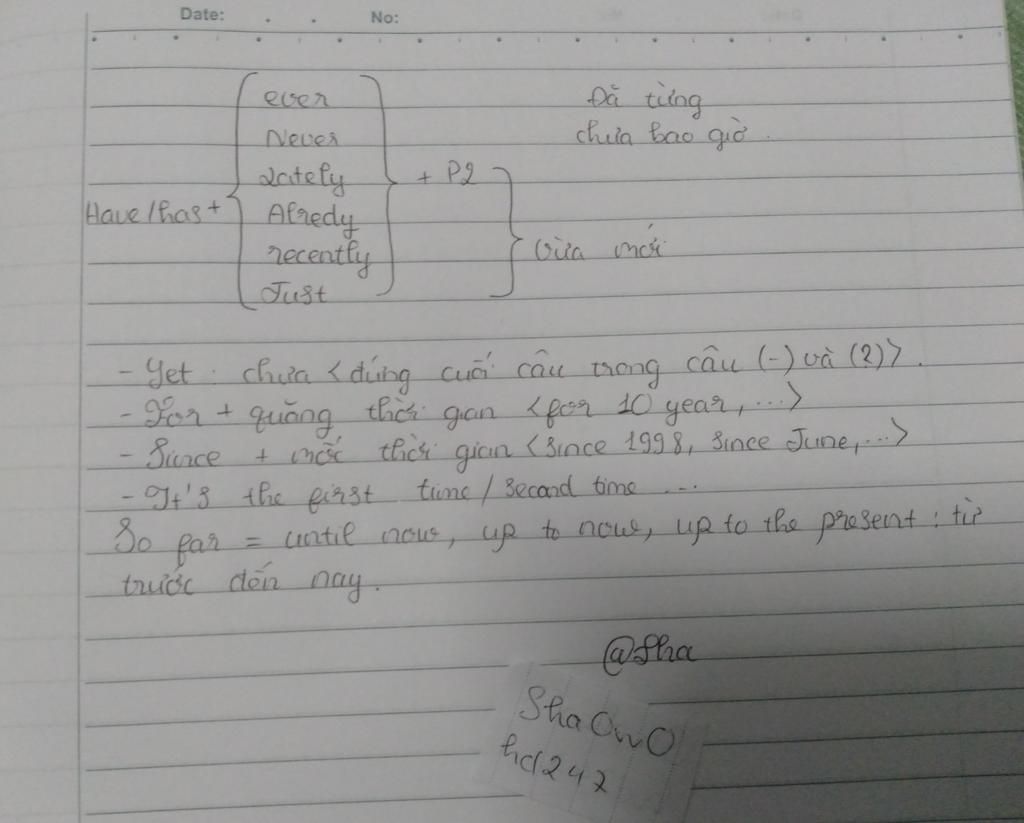 Date: . . No:
ever Đã từng
Never chưa bao giờ.
Lately + P2
Have/has + Alredy
recently Vừa mới
Just
- Yet : chưa <đứng cuối câu trong câu (-) và (?)>.
- For + quãng thời gian <for 10 year, ...>
- Since + mốc thời gian <since 1998, since June, ...>
- It's the first time / second time ...
So far = until now, up to now, up to the present : từ
trước đến nay.
@Sha
ShaOwO
hd247